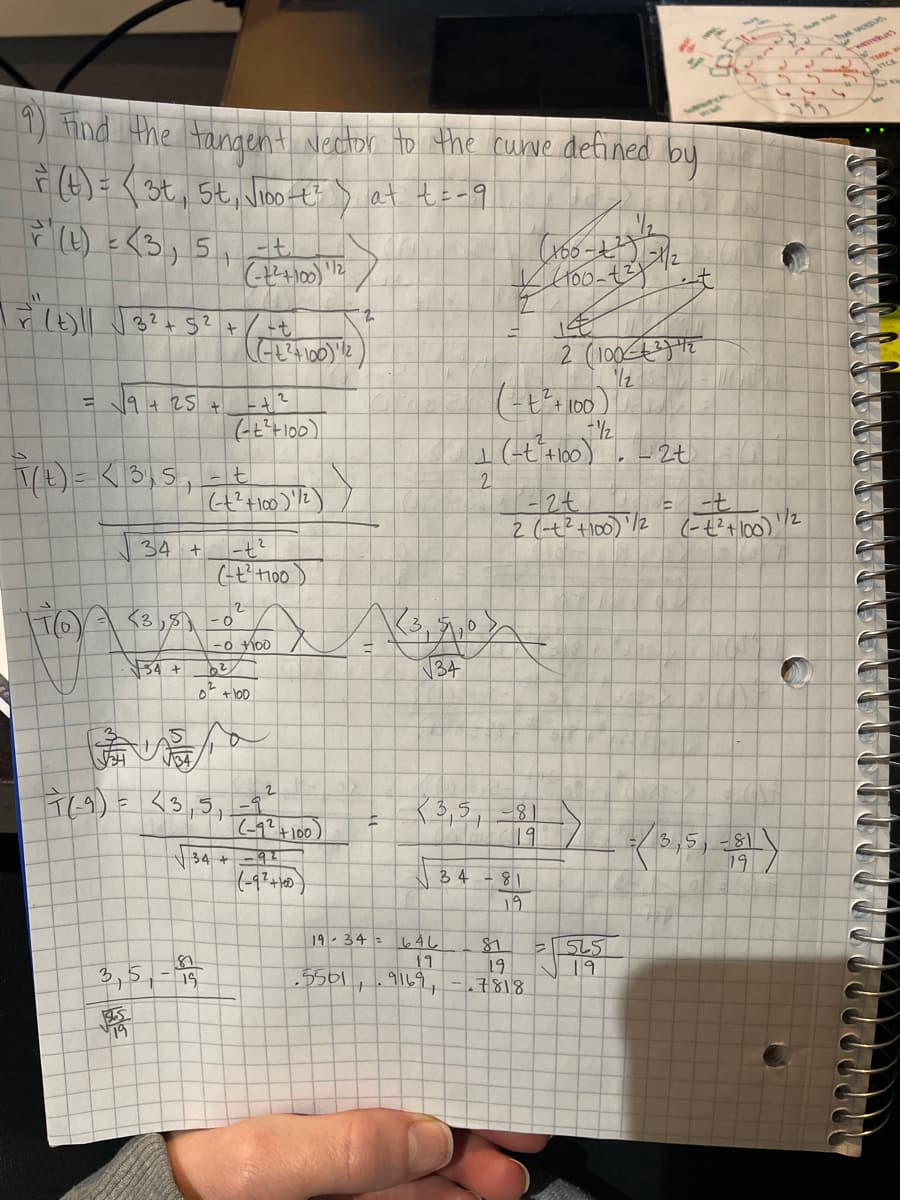 9) Find the tangent vector to the curve defined by
r⃗(t) = ⟨3t, 5t, √(100-t²)⟩ at t=-9
r⃗'(t) = ⟨3, 5, -t/(-t²+100)^1/2⟩
r⃗"(t)|| √(3² + 5² + (-t/((-t²+100)^1/2))²)
= √(9 + 25 + -t²/(-t²+100))
T⃗(t) = ⟨3, 5, -t/((-t²+100)^1/2)⟩ / √(34 + -t²/(-t²+100))
(100-t²)^1/2
1/2 (100-t²)^-1/2 · -t
= 1t / 2(100-t²)^1/2
(-t²+100)^1/2
1/2 (-t²+100)^-1/2 · -2t
-2t / 2(-t²+100)^1/2 = -t / (-t²+100)^1/2
T⃗(0) = ⟨3, 5, -0²/(-0+100)⟩ / √(34 + 0²/(0²+100)) = ⟨3, 5, 0⟩ / √34
3/√34, 5/√34, 0
T⃗(-9) = ⟨3, 5, -9²/(-9²+100)⟩ / √(34 + -9²/(-9²+100)) = ⟨3, 5, -81/19⟩ / √(34 - 81/19) = ⟨3, 5, -81/19⟩
19·34 = 646/19 - 81/19 = √(565/19)
3, 5, -81/19 / √(565/19)
.5501, .9169, -.7818